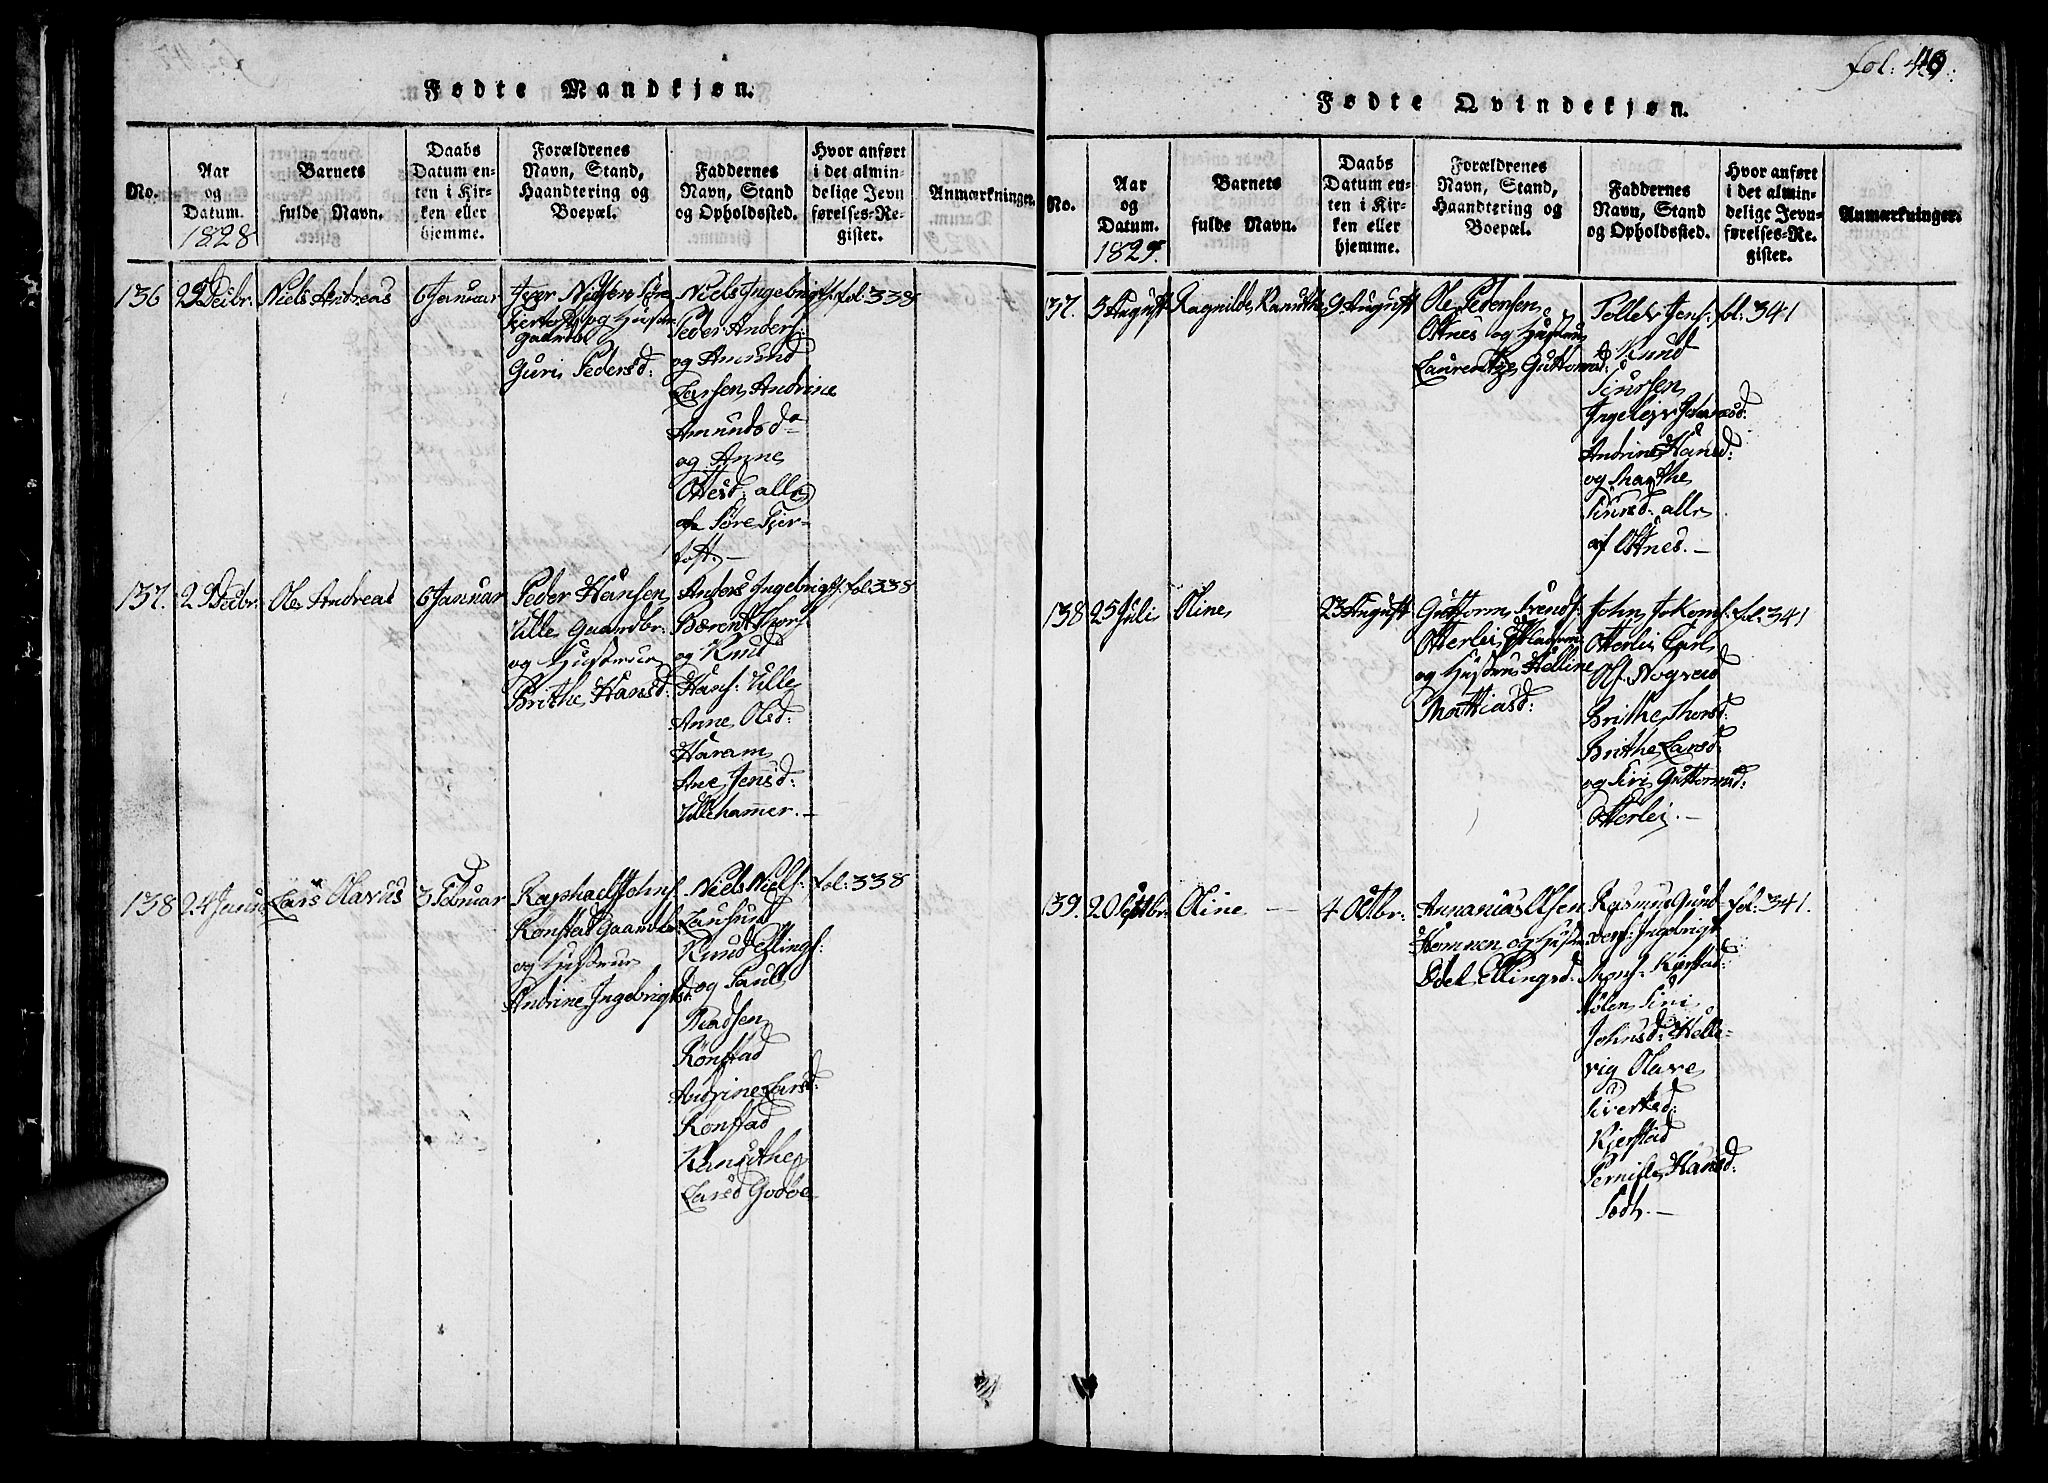 Fødte Mandkjøn.
No.
Aar
og
Datum.
1828
Barnets
fulde Navn.
Daabs
Datum en-
ten i Kir-
ken eller
hjemme.
Forældrenes
Navn, Stand,
Haandtering og
Boepæl.
Faddernes
Navn, Stand
og Opholdssted.
Hvor anført
i det almin-
delige Jevn
førelses-Re-
gister.
Anmærkninger.
136
29 Decbr.
Niels Andreas
6 Januar
Iver Nielsen Søre
Fjertoft og Hustrue
Guri Pedersd:
Niels Ingebrigts.
Peder Anders:
og Amund
Larsen, Andrine
Amundsd
og Anne
Ottesd: alle
af Søre Fjer-
toft. —
fol: 338
137.
29 Decbr.
Ole Andreas
6 Januar
Peder Hansen
Ulle Gaardbr:
og Hustrue
Brithe Hansd:
Anders Ingebrigts.
Bærent Thors
og Knud
Hans: Ulle
Anne Olsd:
Haram
Ane Jensd:
Ullehammer. —
fol: 338
138
24 Januar
Lars Olavus
3 Februar
Raphael Johns:
Rønstad Gaardbr
og Hustrue
Andrine Ingebrigtsd:
Niels Niels:
Lausund
Knud Ellings:
og Paul
Madsen
Rønstad
Andrine Larsd:
Rønstad
Kanuthe
Larsd Godøe
fol: 338
fol: 40.
Fødte Qvindekjøn.
No.
Aar
og
Datum.
1829.
Barnets
fulde Navn.
Daabs
Datum en-
ten i Kir-
ken eller
hjemme.
Forældrenes
Navn, Stand,
Haandtering og
Boepæl.
Faddernes
Navn, Stand
og Opholdssted.
Hvor anført
i det almin-
delige Jevn-
førelses-Re-
gister.
Anmærkninger.
137.
5 August
Ragnilde Kanuthe
9 August
Ole Pedersen
Ottnes og Hustrue
Laurentze Guttormsd:
Peder Jens:
Knud
Siursen
Ingeleiv Johansd:
Andrine Hansd:
og Marthe
Siursd: alle
af Ottnes. —
fol: 341
138
25 Juli
Oline
23 August
Guttorm Svends:
Otterlei
og Hustrue Helline
Mattiasd:
John Jokoms:
Otterlei Carl
Ols: Nogved
Brithe Thorsd:
Brithe Larsd:
og Siri Guttormsd:
Otterlei. —
fol: 341
139.
20 Septbr:
Oline —
4 Octbr:
Annanias Olsen
Hamnen og Hustrue
Edel Ellingsd:
Rasmus Gund-
vers: Ingebrigt
Mons: Kierstad:
Siri
Johnsd: Helle-
vig Olave
Sivertsd:
Kierstad
Pernille Hansd:
fol: 341.